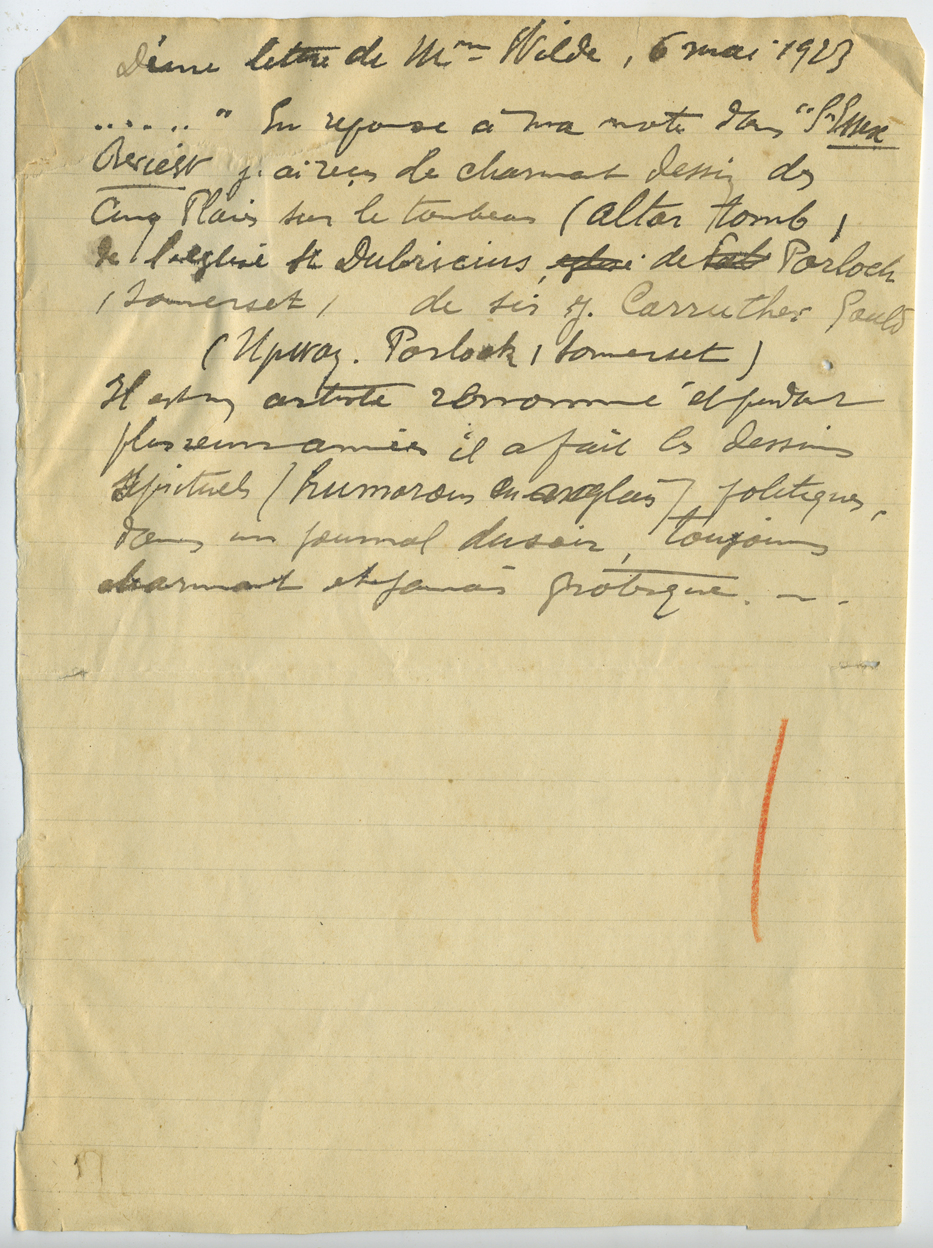 D'une lettre de Mme Wilde, 6 mai 1923
..... " En reponse à ma note dans "l'Essex
Review j'ai reçu le charmant dessin des
Cinq Plaies sur le tombeau (altar tomb)
de l'eglise St Dubricius, eglise de Porlock
(Somerset) de sir J. Carruthers Gould
(Upway. Porlock, Somerset)
Il est un artiste renommé et pendant
plusieurs années il a fait les dessins
spirituels (humorous en anglais) politiques,
dans un journal du soir, toujours
charmant et jamais grotesque. — .